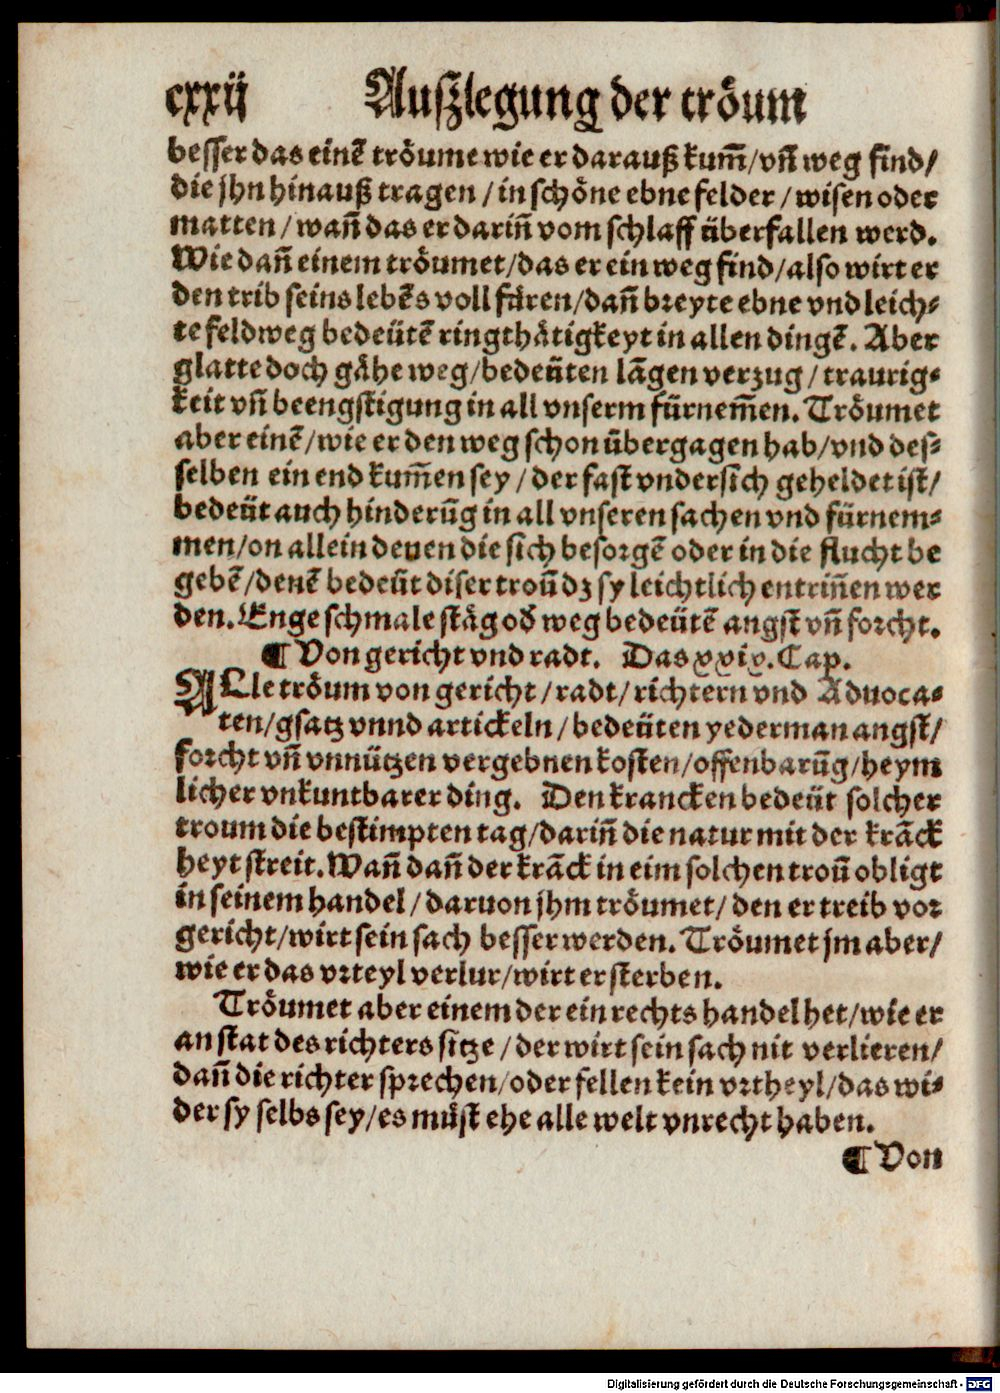 cxxij Auſzlegung der tröum
beſſer das einē tröume wie er darauß kum̄/vn̄ weg find/
die jhn hinauß tragen / in ſchöne ebne felder / wiſen oder
matten / wan̄ das er darin̄ vom ſchlaff überfallen werd.
Wie dan̄ einem tröumet/das er ein weg find/alſo wirt er
den trib ſeins lebēs voll füren/dan̄ breyte ebne vnd leich⸗
te feldweg bedeütē ringthätigkeyt in allen dingē. Aber
glatte doch gähe weg/bedeüten lāgen verzug / traurig⸗
keit vn̄ beengſtigung in all vnſerm fürnem̄en. Tröumet
aber einē/wie er den weg ſchon übergagen hab/vnd deſ⸗
ſelben ein end kum̄en ſey / der faſt vnderſich geheldet iſt/
bedeüt auch hinderūg in all vnſeren ſachen vnd fürnem⸗
men/on allein denen die ſich beſorgē oder in die flucht be
gebē/denē bedeüt diſer troū dz ſy leichtlich entrin̄en wer
den. Enge ſchmale ſtäg od̕ weg bedeütē angſt vn̄ forcht.
¶ Von gericht vnd radt. Das xxix. Cap.
ALle tröum von gericht / radt/ richtern vnd Aduoca⸗
ten/gſatz vnnd artickeln / bedeüten yederman angſt/
forcht vn̄ vnnützen vergebnen koſten/offenbarūg/heym
licher vnkuntbarer ding. Den krancken bedeüt ſolcher
troum die beſtimpten tag/darin̄ die natur mit der krāck
heyt ſtreit. Wan̄ dan̄ der krāck in eim ſolchen troū obligt
in ſeinem handel / daruon jhm tröumet/ den er treib vor
gericht/wirt ſein ſach beſſer werden. Tröumet jm aber/
wie er das vrteyl verlur/wirt er ſterben.
Tröumet aber einem der ein rechts handel het/wie er
an ſtat des richters ſitze / der wirt ſein ſach nit verlieren/
dan̄ die richter ſprechen/oder fellen kein vrtheyl/das wi⸗
der ſy ſelbs ſey/es müſt ehe alle welt vnrecht haben.
¶ Von
Digitalisierung gefördert durch die Deutsche Forschungsgemeinschaft - DFG